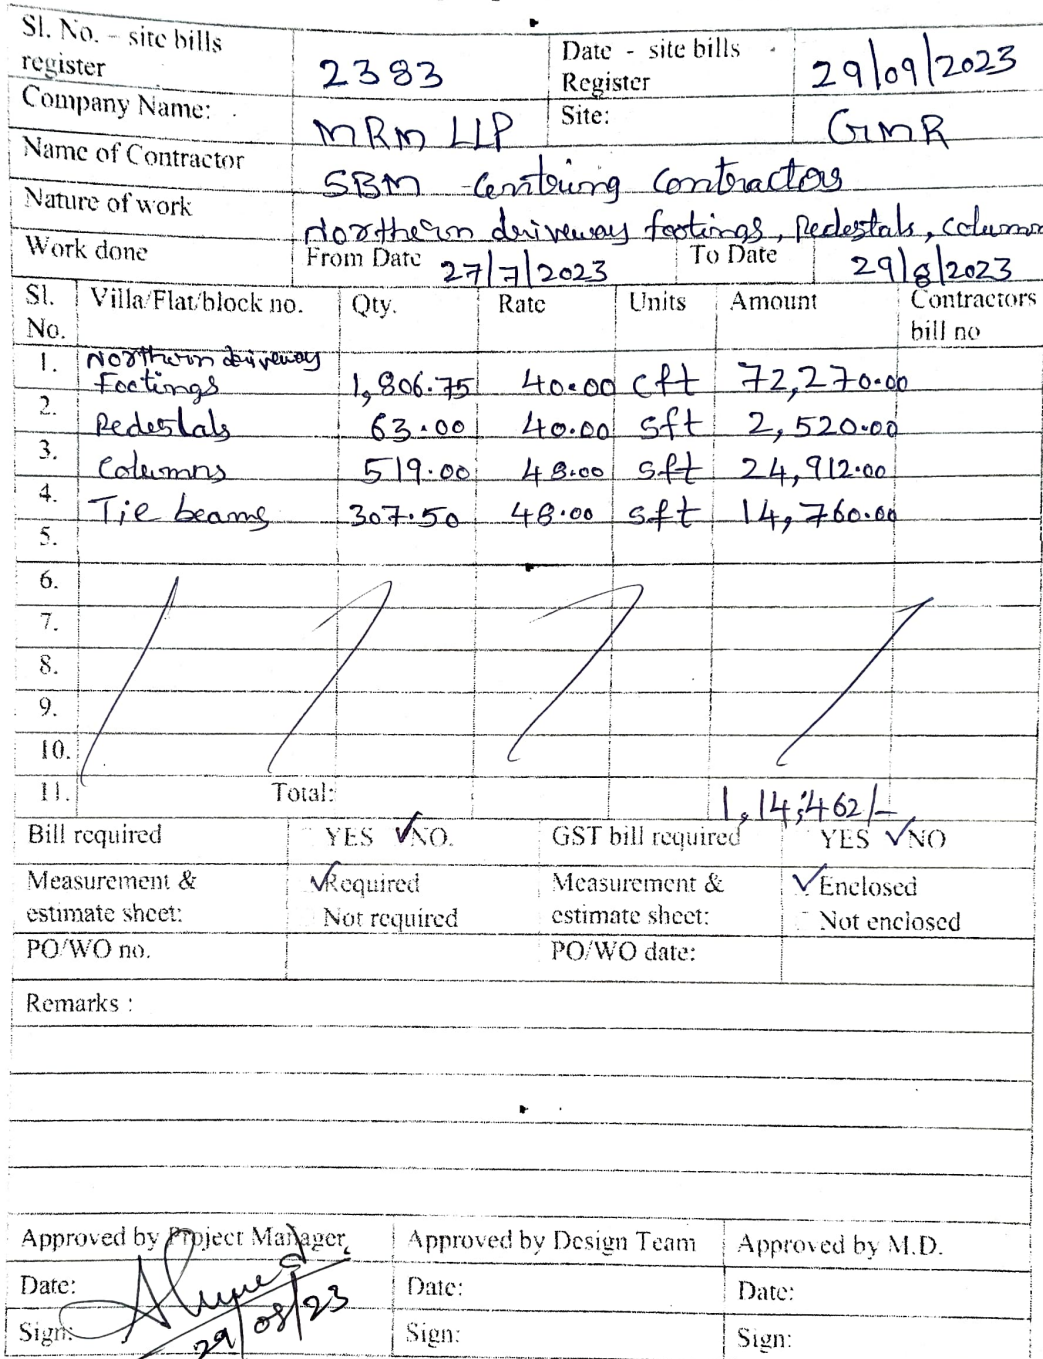 Sl. No. – site bills register 2383 Date - site bills Register 29/09/2023
Company Name: MRM LLP Site: GMR
Name of Contractor SBM Centering Contractors
Nature of work Northern driveway footings, Pedestals, columns
Work done From Date 27/7/2023 To Date 29/8/2023
Sl. No. Villa/Flat/block no. Qty. Rate Units Amount Contractors bill no
1. Northern driveway Footings 1,806.75 40.00 cft 72,270.00
2. Pedestals 63.00 40.00 sft 2,520.00
3. Columns 519.00 48.00 sft 24,912.00
4. Tie beams 307.50 48.00 sft 14,760.00
5.
6.
7.
8.
9.
10.
11. Total: 1,14,462/-
Bill required YES ✓NO. GST bill required YES ✓NO
Measurement & estimate sheet: ✓Required Not required Measurement & estimate sheet: ✓Enclosed Not enclosed
PO/WO no. PO/WO date:
Remarks :
Approved by Project Manager Approved by Design Team Approved by M.D.
Date: Date: Date:
Sign: 29/08/23 Sign: Sign: